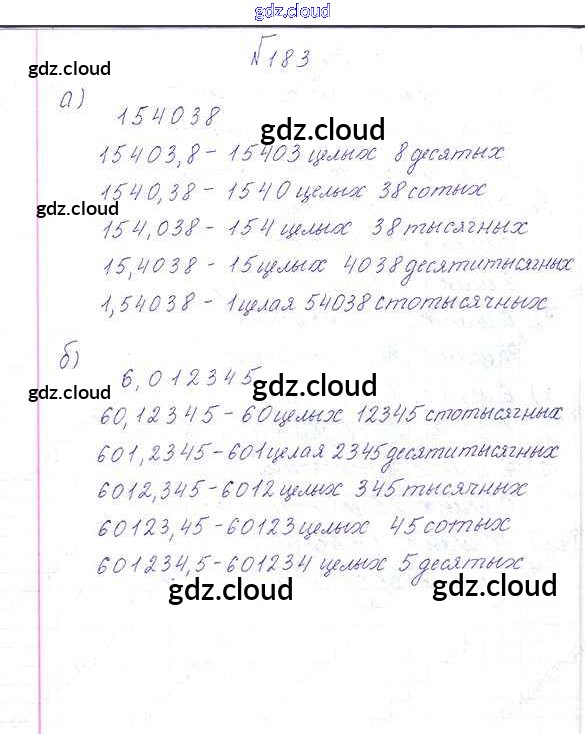 gdz.cloud
№183
gdz.cloud
а)
154038
gdz.cloud
15403,8 - 15403 целых 8 десятых
1540,38 - 1540 целых 38 сотых
gdz.cloud
154,038 - 154 целых 38 тысячных
15,4038 - 15 целых 4038 десятитысячных
1,54038 - 1 целая 54038 стотысячных
б)
6,012345
gdz.cloud
gdz.cloud
60,12345 - 60 целых 12345 стотысячных
601,2345 - 601 целая 2345 десятитысячных
6012,345 - 6012 целых 345 тысячных
60123,45 - 60123 целых 45 сотых
601234,5 - 601234 целых 5 десятых
gdz.cloud
gdz.cloud